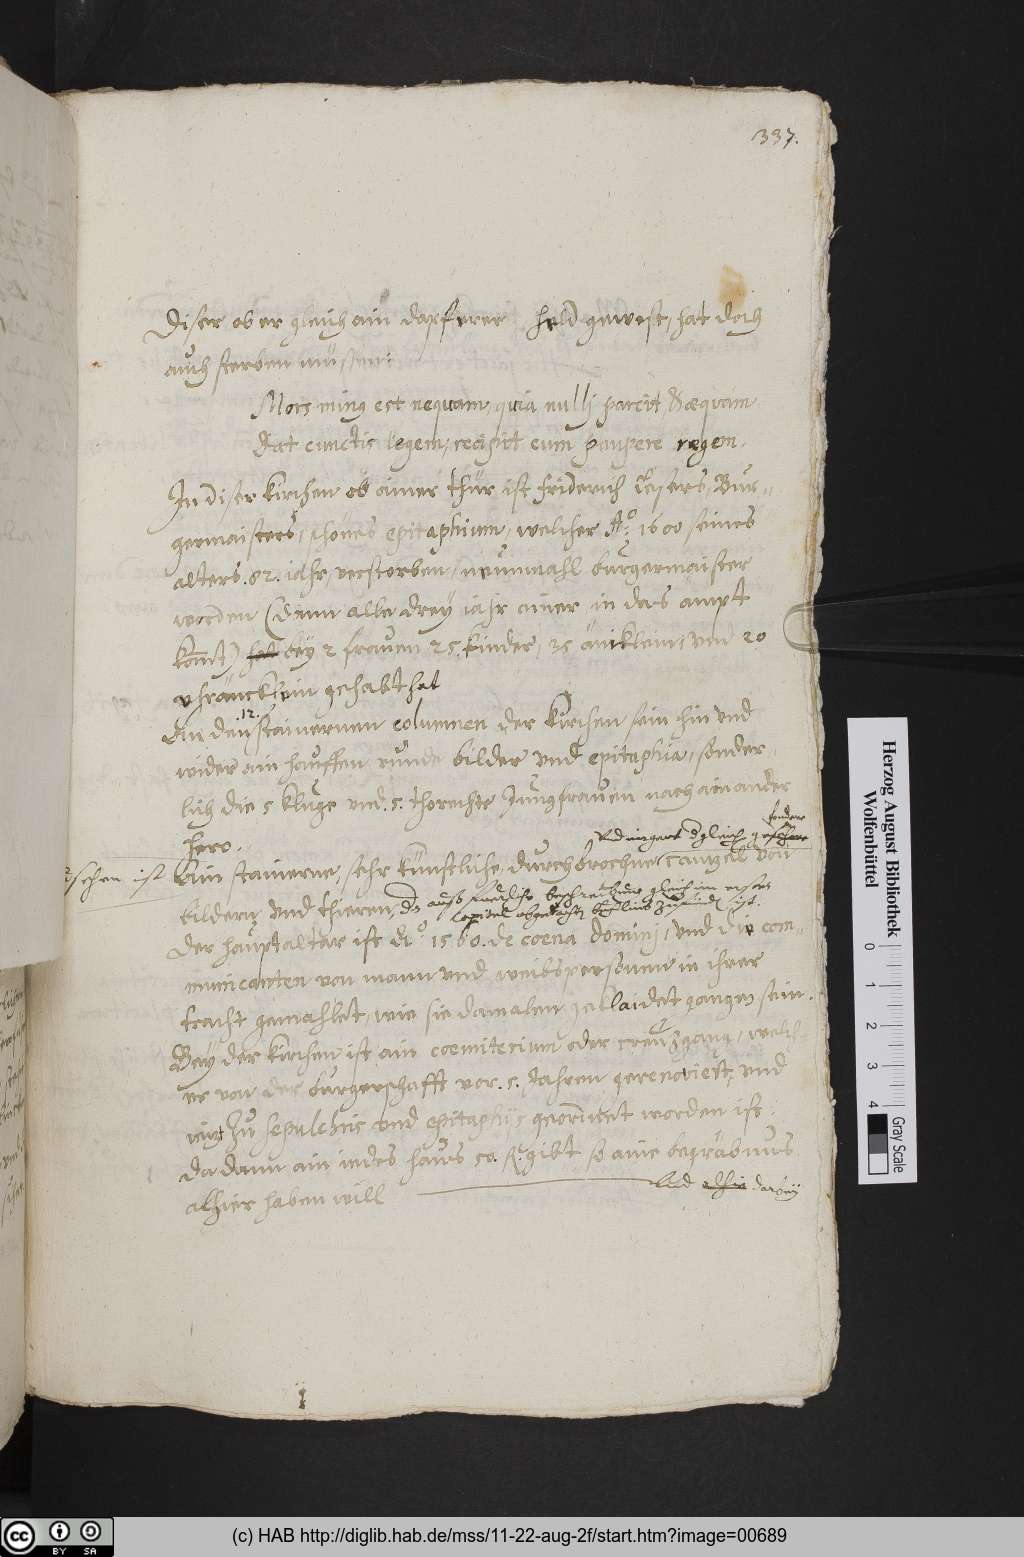 337.
Diser ob er gleich ain dapferer held gewest, hat doch
auch sterben müssen:
Mors nimis est nequam, quia nulli parcit & aequam
Dat cunctis legem, recipit cum paupere regem.
In diser kirchen ob ainer thür ist Friderich Bur-
germaisters, schönes epitaphium, welcher Aº: 1600 seines
alters. 82. jahr, verstorben, neunmahl burgermaister
worden (dann alle drey jahr ainer in das ampt
komt) hat bey 2 frauen 25. kinder, 35 äniklein, und 20
uhräncklein gehabt hat
An den 12. stainernen columnen der kirchen sein hin und
wider ain hauffen runde bilder und epitaphia, sonder-
lich die 5 kluge und. 5. thorechte Jungfrauen nach ainander
hero.
Ain stainerne, sehr künstliche, durchbrochne cantzel von
sehen ist
bildern und thieren,
Der hauptaltar ist Aº 1560. de coena domini, und die com-
municanten von mann und weibspersonnen in ihrer
tracht gemahlet, wie sie damalen geklaidet gangen sein.
Bey der kirchen ist ain coemiterium oder creuzgang, welch-
er von der burgerschafft vor. 5. Jahren gerenoviert, und
nur zu sepulchris und epitaphijs geordnet worden ist:
da dann ain iedes haus 50. fl. gibt, so aine begräbnus
alhier haben will
und dabey
Herzog August Bibliothek
Wolfenbüttel
0 1 2 3 4
Gray Scale
(c) HAB http://diglib.hab.de/mss/11-22-aug-2f/start.htm?image=00689
cc BY SA